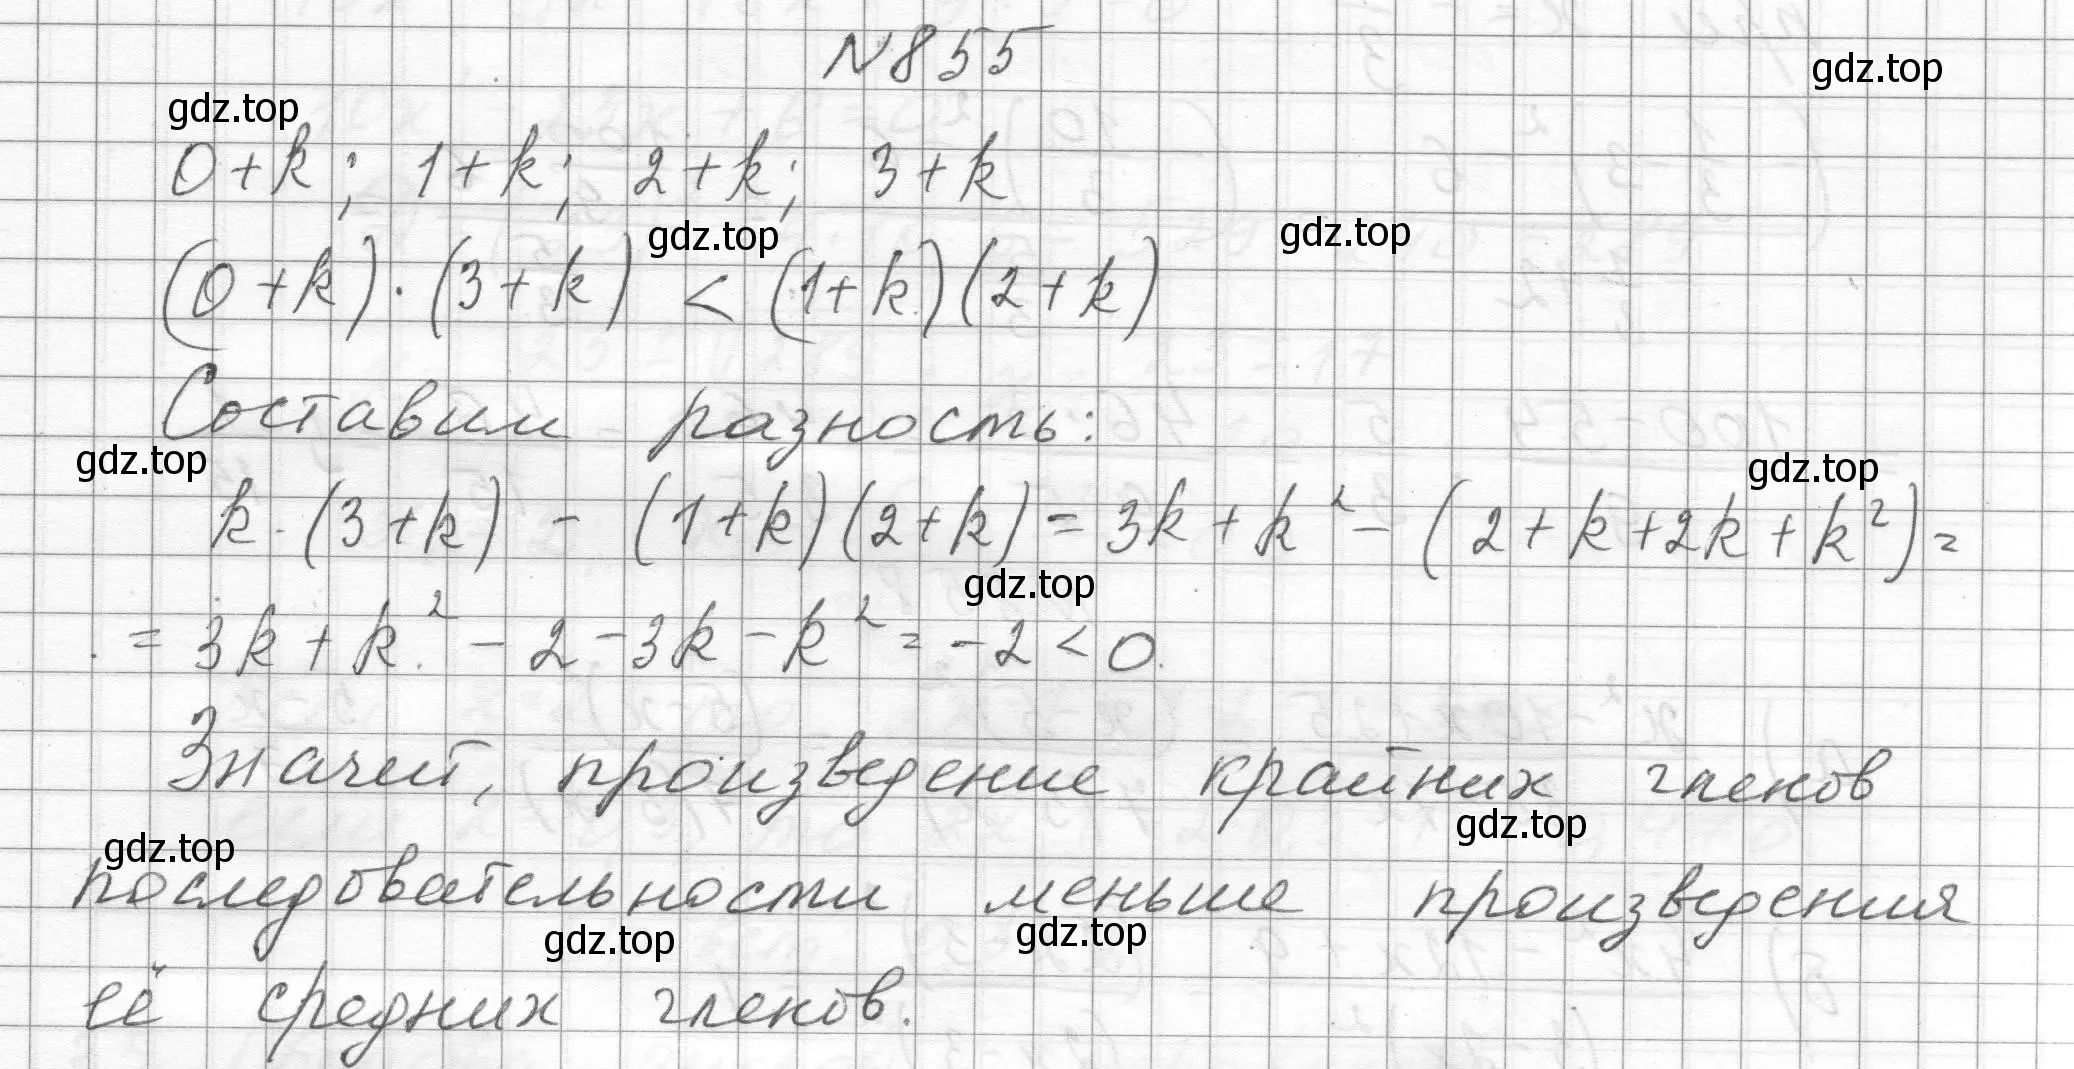 N855
gdz.top
gdz.top
0+k; 1+k; 2+k; 3+k
gdz.top
gdz.top
(0+k)·(3+k) < (1+k)(2+k)
Составим разность:
gdz.top
gdz.top
k·(3+k) - (1+k)(2+k) = 3k+k² - (2+k+2k+k²) =
gdz.top
= 3k+k² - 2 - 3k - k² = -2 < 0.
Значит, произведение крайних членов
gdz.top
gdz.top
последовательности меньше произведения
gdz.top
gdz.top
её средних членов.